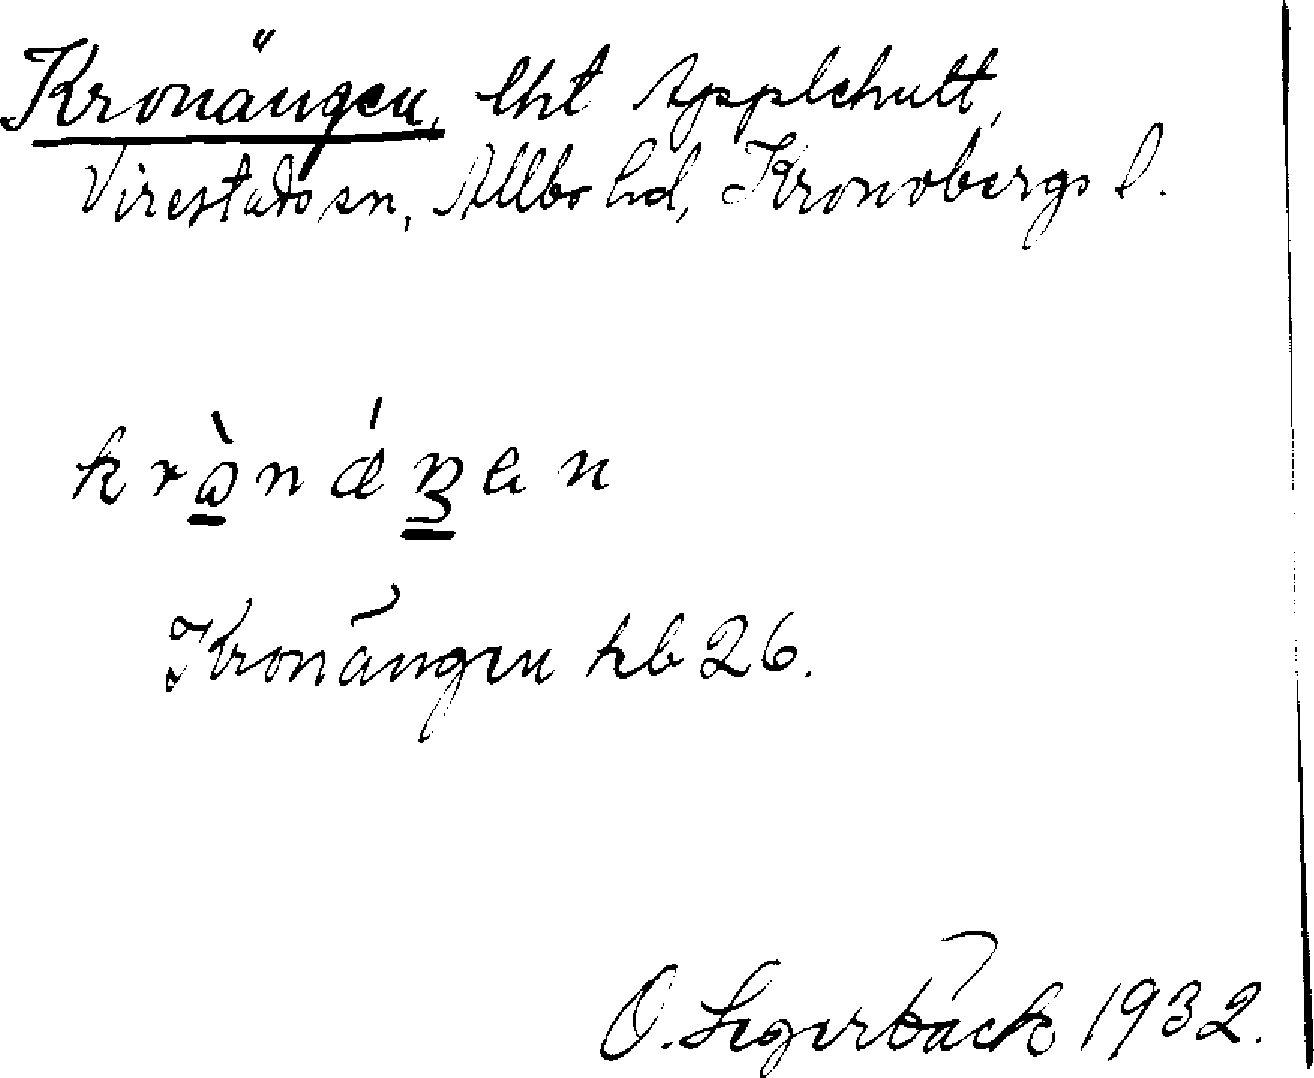 Kronängen, lht Applehult,
Virestads sn, Allbo hd, Kronobergs l.
krònǽŋen
Kronängen kb 26.
O. Segerbäck 1932.